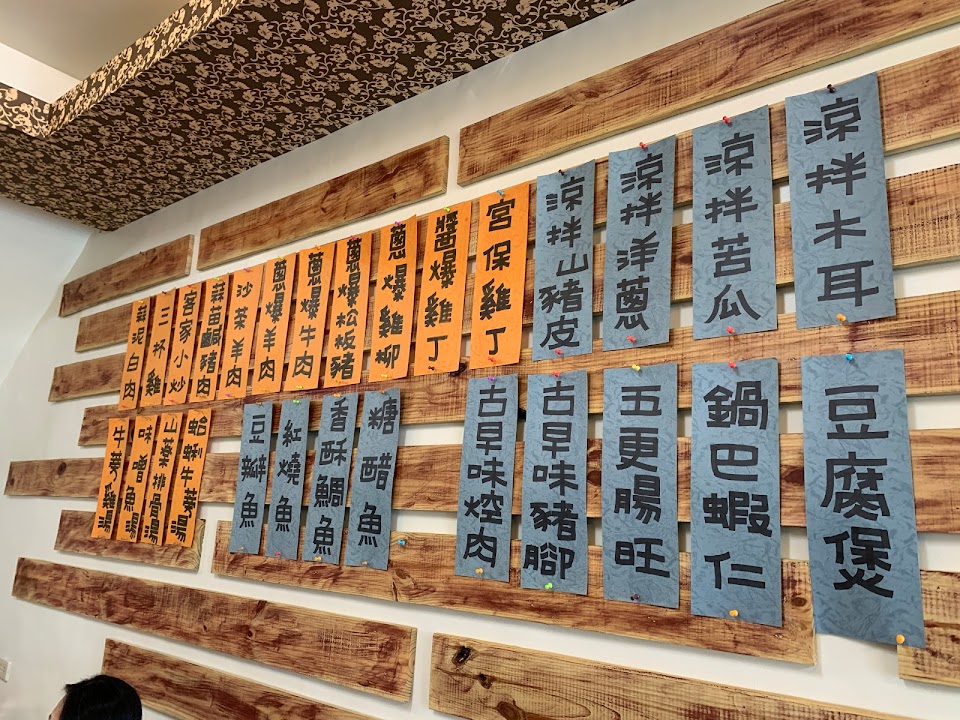 涼拌木耳
涼拌苦瓜
涼拌洋蔥
涼拌山豬皮
宮保雞丁
醬爆雞丁
蔥爆雞柳
蔥爆松板豬
蔥爆牛肉
蔥爆羊肉
沙茶羊肉
蒜苗鹹豬肉
客家小炒
三杯雞
蒜泥白肉
豆腐煲
鍋巴蝦仁
五更腸旺
古早味豬腳
古早味焢肉
糖醋魚
香酥鯛魚
紅燒魚
豆瓣魚
蛤蜊牛蒡湯
山藥排骨湯
味噌魚湯
牛蒡雞湯